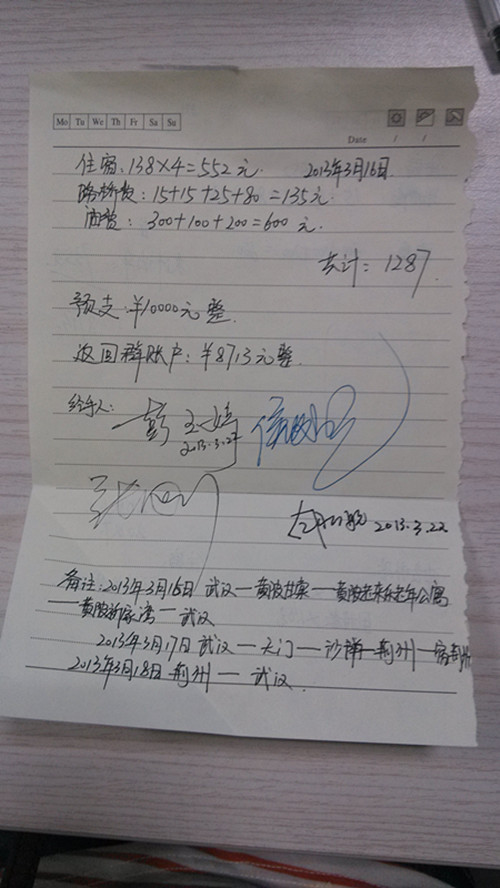 Mo Tu We Th Fr Sa Su
Date / /
住宿:138×4=552元. 2013年3月16日
路桥费:15+15+25+80=135元.
油费: 300+100+200=600元.
共计:1287.
预支:¥10000元整.
返回群账户:¥8713元整.
经手人:
彭玉婷
2013.3.22
2013.3.22
备注:2013年3月16日 武汉—黄陂甘棠—黄陂老来乐老年公寓
—黄陂祁家湾—武汉
2013年3月17日 武汉—天门—沙洋—荆州—宿荆州
2013年3月18日 荆州—武汉.